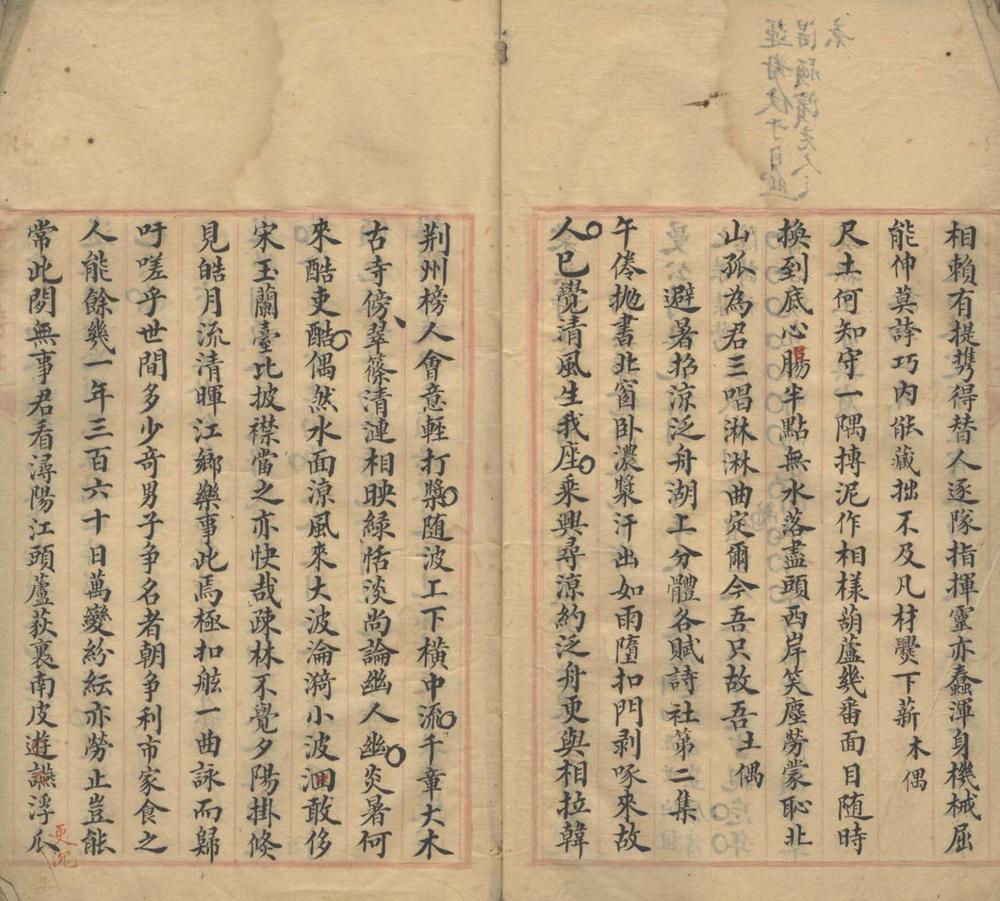 相賴有提携得替人逐隊指揮靈亦蠢渾身機械屈
能伸莫誇巧內能藏拙不及凡材爨下薪木偶
尺土何知守一隅摶泥作相樣葫蘆幾番面目隨時
換到底心腸半點無水落盡頭西岸笑塵勞蒙恥北
山孤為君三唱淋淋曲定爾今吾只故吾土偶
避暑招涼泛舟湖上分體各賦詩社第二集
午倦拋書北窗臥濃漿汗出如雨墮扣門剥啄來故
人已覺清風生我座乘興尋涼約泛舟更與相拉韓
荆州榜人會意輕打槳随波上下横中流千章大木
古寺傍翠篠清漣相映緑恬淡尚論幽人幽炎暑何
來酷吏酷偶然水面涼風來大波淪漪小波洄敢侈
宋玉蘭臺比披襟當之亦快哉疎林不覺夕陽掛倏
見皓月流清暉江鄉樂事此焉極扣舷一曲詠而歸
吁嗟乎世間多少奇男子争名者朝争利市家食之
人能餘幾一年三百六十日萬變紛紜亦勞止豈能
常此閒無事君看潯陽江頭蘆荻裏南皮遊讌浮瓜
更沉